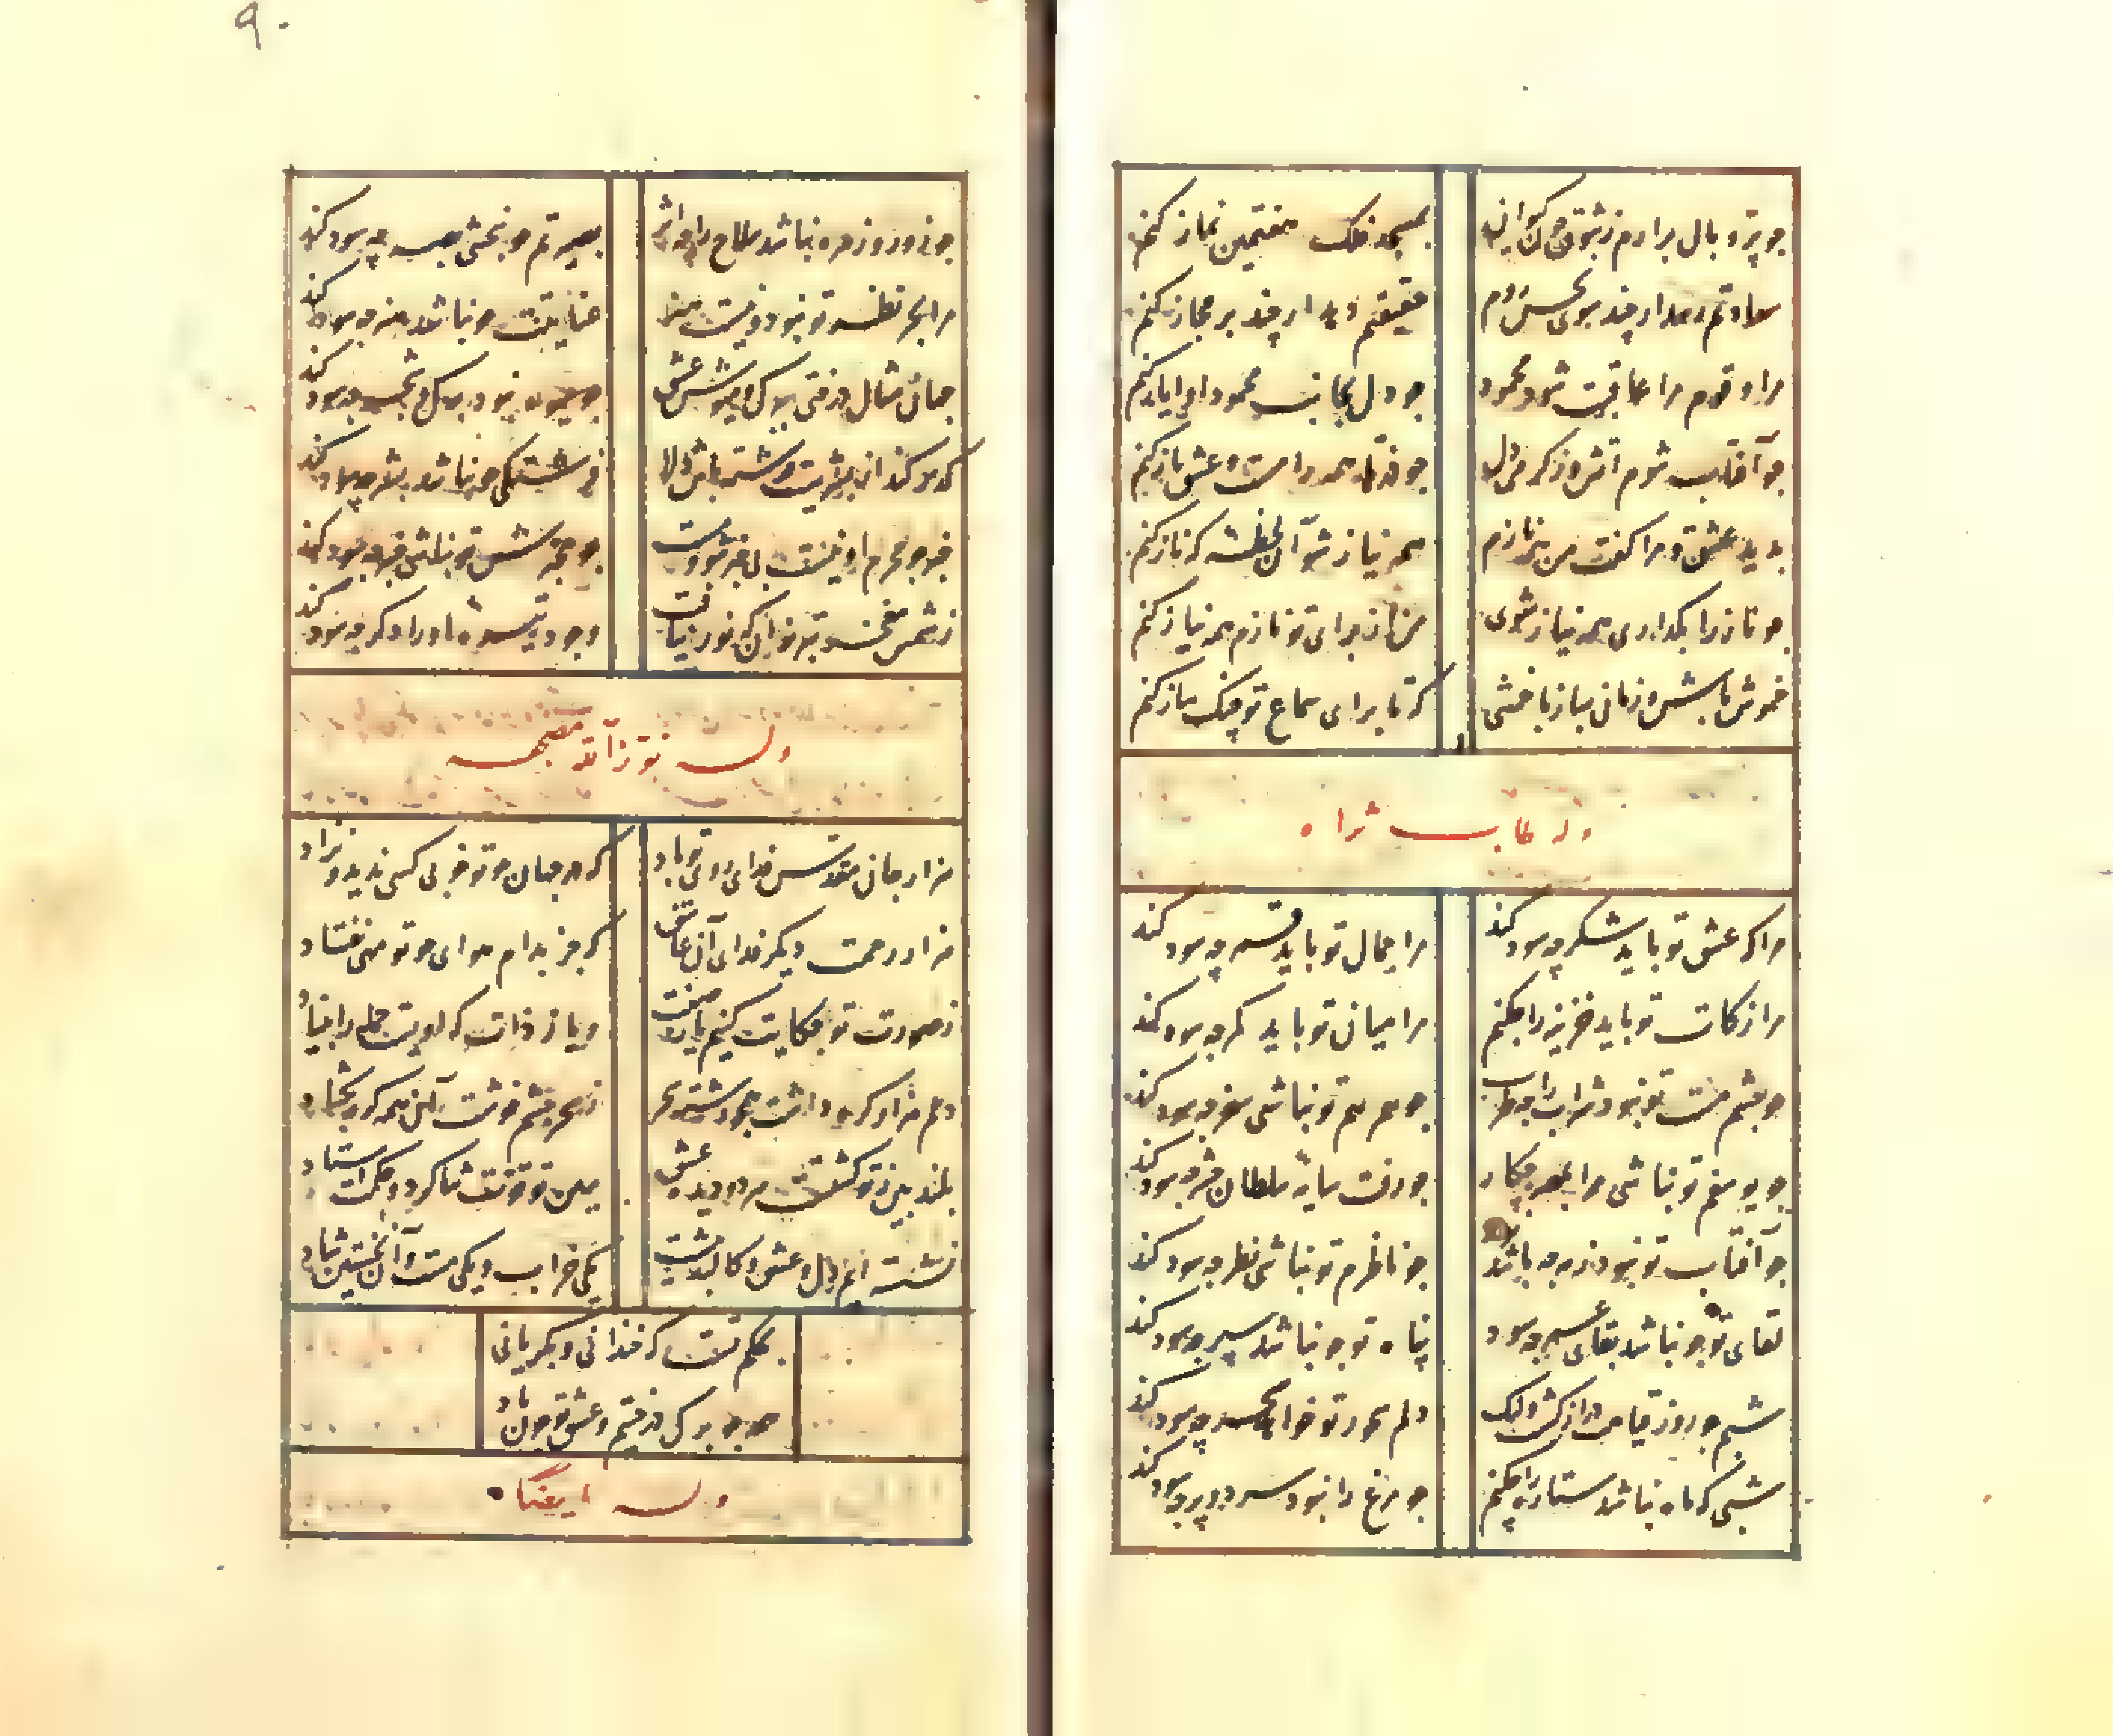 چو پر و بال برارم ز شوق چون کیوان
بمسجد فلک هفتمین نماز کنم
سعادتم دهد ار چند بوی نحس دهم
حقیقتم دهد ار چند بر مجاز کنم
مرا و قوم مرا عاقبت شود محمود
چو دل بجانب محمود او ایاز کنم
چو آفتاب شوم آتش و ز گرمی دل
چو ذره‌ها همه را مست و عشق باز کنم
بدید عشق و مرا گفت من همه نازم
همه نیاز شو آن لحظه که ناز کنم
چو ناز را بگذاری همه نیاز شوی
من از برای تو نازم همه نیاز کنم
خموش باش زمانی بساز با خمشی
که تا برای سماع تو چنگ ساز کنم
وله طاب ثراه
مرا که عشق تو باید شکر چه سود کند
مرا جمال تو باید قمر چه سود کند
مرا زکات تو باید خزینه را چکنم
مرا میان تو باید کمر چه سود کند
چو چشم مست تو نبود شراب را چه طرب
چو همرهم تو نباشی سفر چه سود کند
چو یوسفم تو نباشی مرا بمصر چکار
چو رفت سایه سلطان حشر چه سود کند
چو آفتاب تو نبود ز مه چه باشد
چو ناظرم تو نباشی نظر چه سود کند
لقای تو چو نباشد بقای عمر چه سود
پناه تو چو نباشد سپر چه سود کند
شبم چو روز قیامت دراز گشت ولیک
دلم سحور تو خواهد سحر چه سود کند
شبی که ماه نباشد ستاره را چکنم
چو مرغ را نبود سر دو پر چه سود کند
چو زور و زهره نباشد سلاح را چه اثر
بصیرتم چو نبخشی بصر چه سود کند
مرا بجز نظر تو نبود و نیست هنر
عنایتت چو نباشد هنر چه سود کند
جهان مثال درختی برگ و میوش عشق
چو میوه نبود برگ و شجر چه سود کند
گذر کن از بشریت فرشته باش دلا
فرشتگی چو نباشد بشر چه سود کند
خبر چو محرم او نیست بی خبر شو و مست
چو مخبرش تو نباشی خبر چه سود کند
ز شمس مفخر تبریز آن که نور نیافت
وجود تیره او را دگر چه سود کند
وله نور الله مضجعه
هزار جان مقدس فدای روی تو باد
که در جهان چو تو خوبی کسی ندید و نزاد
هزار رحمت دیگر فدای آن عاشق
که جز بدام هوای چو تو مهی نفتاد
ز صورت تو حکایت کنیم یا ز صفت
دلم هزار گره داشت همچو رشته سحر
ز سحر چشم خوشت آن همه گره بگشاد
بلند بین ز تو گشتست هر دو دیده عشق
ببین تو قوت شاگرد و حکمت استاد
نشسته‌ایم دل و عشق و کالبد پیشت
یکی خراب و یکی مست و آن نخستین شاد
بحکم تست که خندانی و بگریانی
همه چو برگ درختیم و عشق تو چون باد
وله ایضا
۹۰